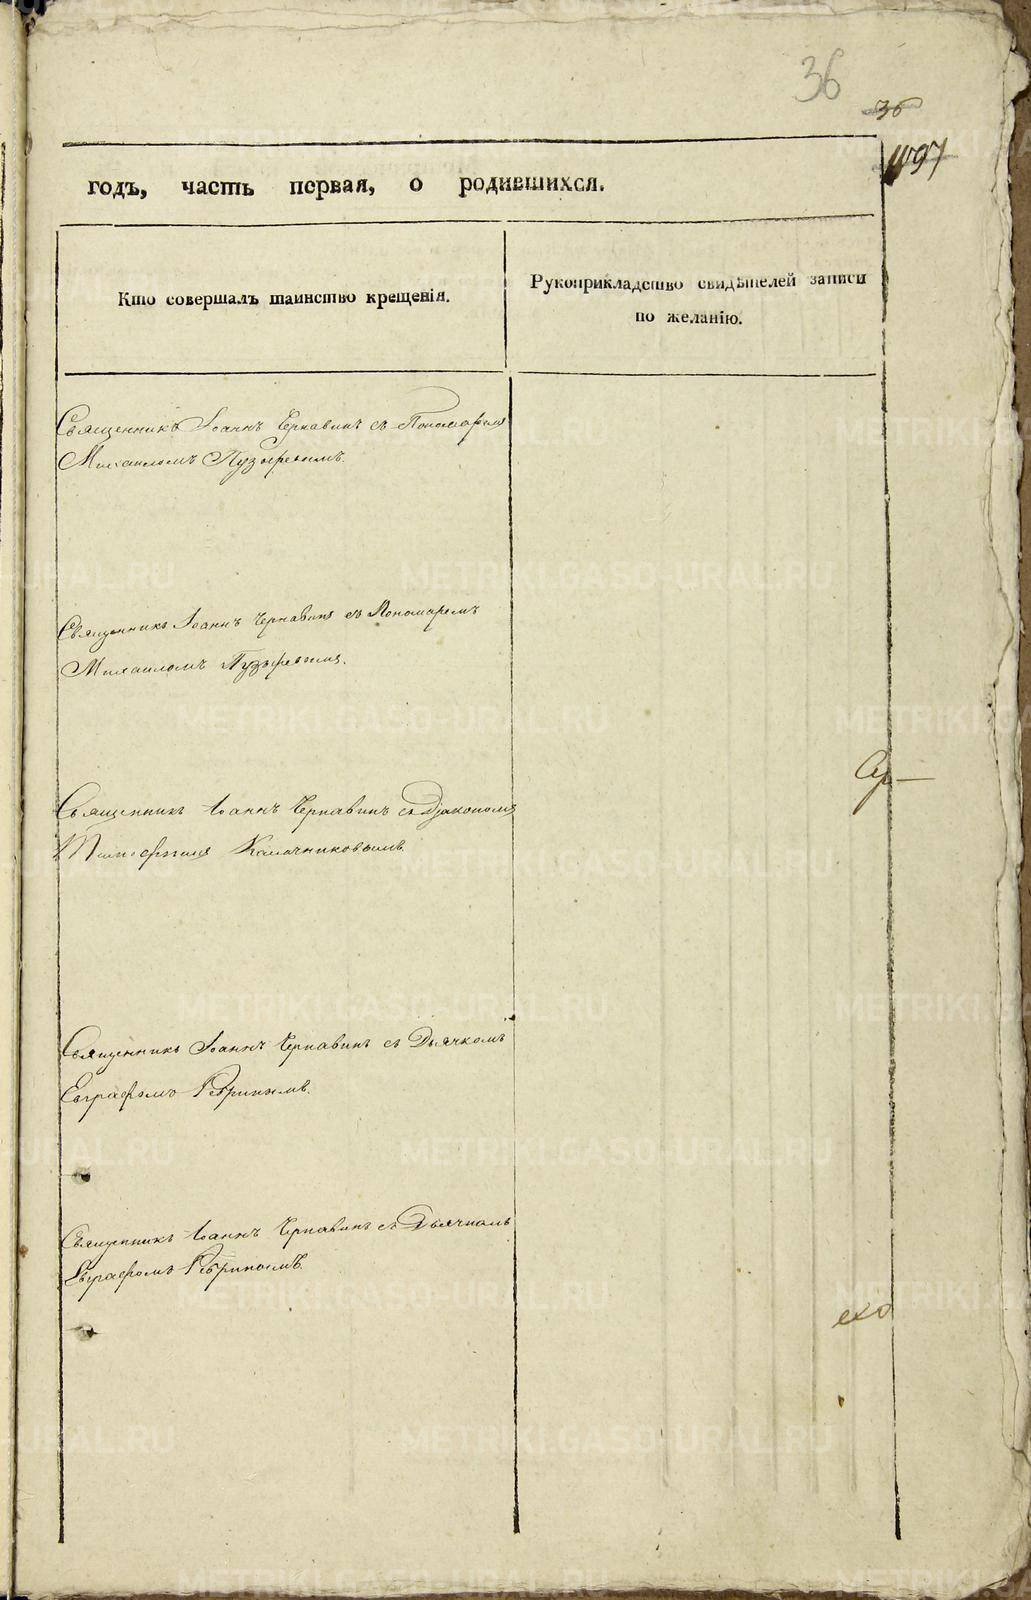 36
36
1097
годъ, часть первая, о родившихся.
Кто совершалъ таинство крещенія.
Рукоприкладство свидѣтелей записи
по желанію.
Священникъ Іоаннъ Чернавинъ съ Пономаремъ
Михаиломъ Пузыревымъ.
Священникъ Іоаннъ Чернавинъ съ Пономаремъ
Михаиломъ Пузыревымъ.
Священникъ Іоаннъ Чернавинъ съ Діакономъ
Калачниковымъ.
Священникъ Іоаннъ Чернавинъ съ Дьячкомъ
Евграфомъ Ребринымъ.
Священникъ Іоаннъ Чернавинъ съ Дьячкомъ
Евграфомъ Ребринымъ.
METRIKI.GASO-URAL.RU